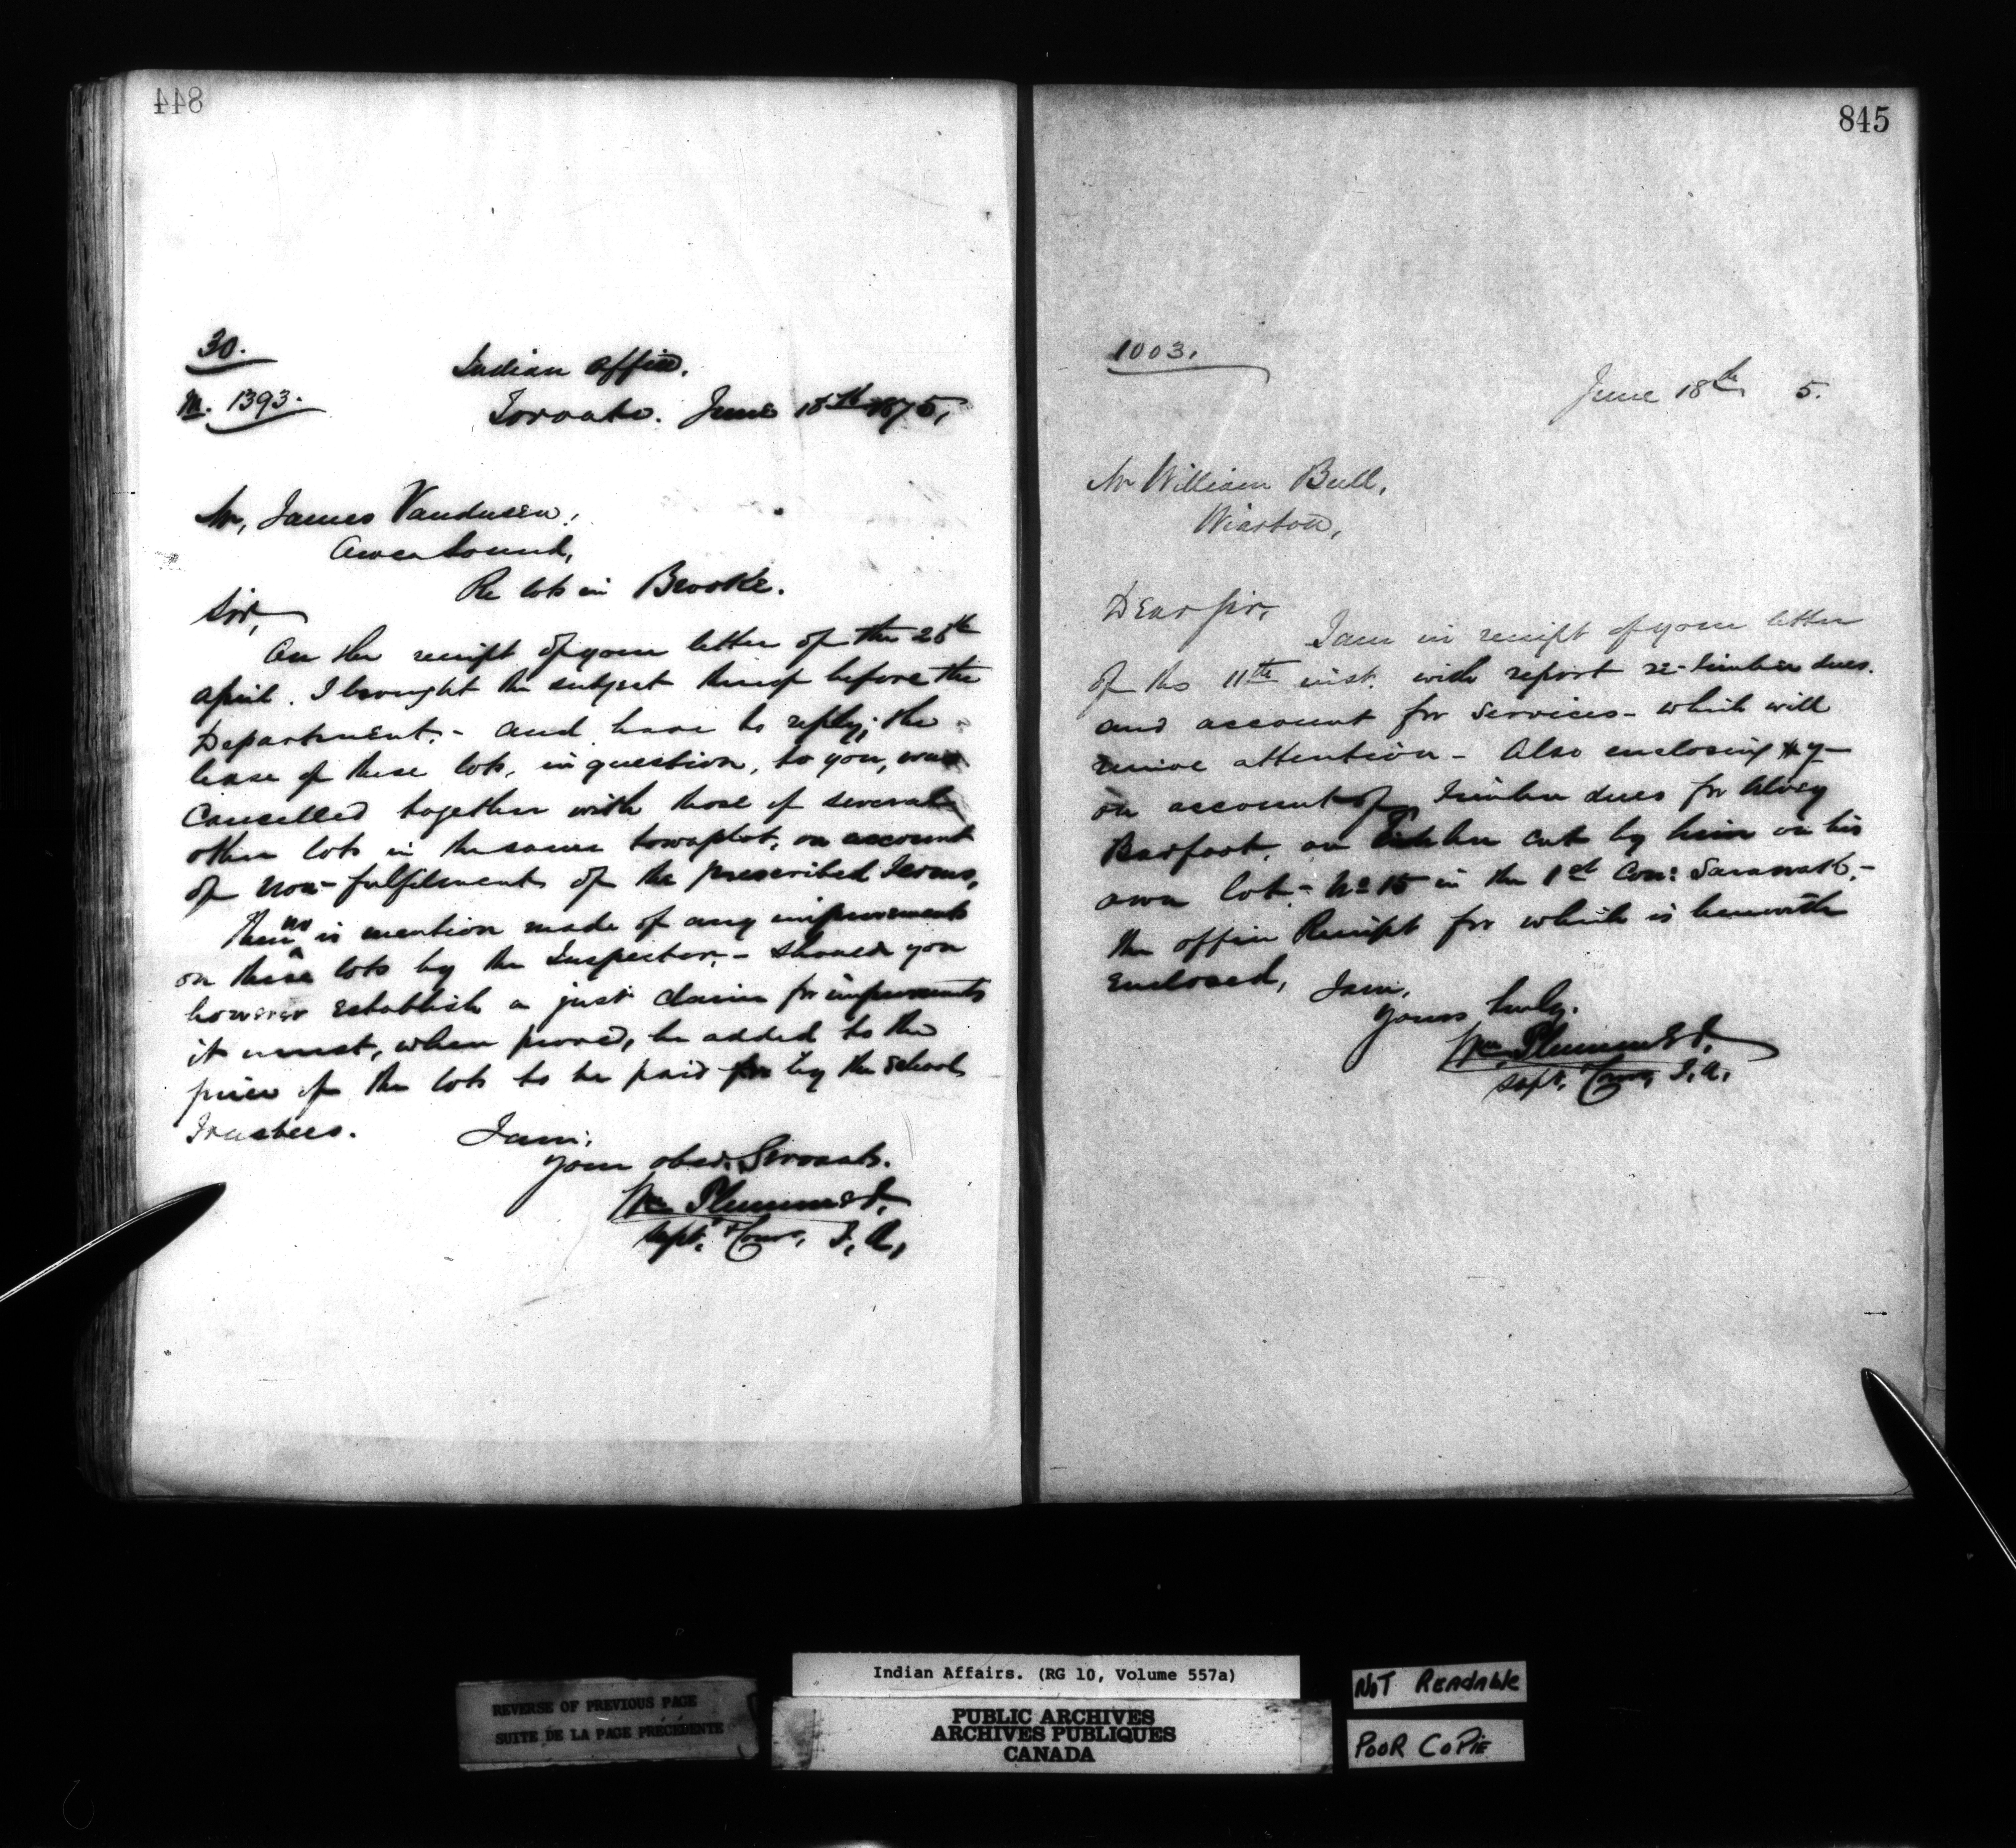 844
30.
M. 1393.
Indian Office,
Toronto. June 18th 1875,
Mr, James Vandusen,
Owen Sound,
Re lots in Brooke.
Sir,
On the receipt of your letter of the 28th
April. I brought the subject thereof before the
Department,- and have to reply; the
lease of these lots, in question, to you, was
Cancelled together with those of several
other lots in the same townplot, on account
of non-fulfilment of the prescribed Terms,
There is no mention made of any improvements
on these lots by the Inspector,- Should you
however Establish a just claim for improvements
it must, when proved, be added to the
price of the lots to be paid for by the School
Trustees.
I am,
Your obed. Servant.
Wm Plummer,
Supt. & Comr, I, A,
845
1003.
June 18th 5.
Mr William Bull,
Wiarton,
Dear Sir,
I am in receipt of your letter
of the 11th inst. with report re-timber dues.
and account for Services- which will
receive attention- Also enclosing
on account of Timber dues for
on Timber cut by him on his
own lot- No 15 in the 1st Con: Sarawak,-
the office Receipt for which is herewith
Enclosed, I am,
Yours truly.
Wm Plummer,
Supt. Comr, I, A,
Indian Affairs. (RG 10, Volume 557a)
REVERSE OF PREVIOUS PAGE
SUITE DE LA PAGE PRÉCÉDENTE
PUBLIC ARCHIVES
ARCHIVES PUBLIQUES
CANADA
NOT READABLE
POOR COPIE